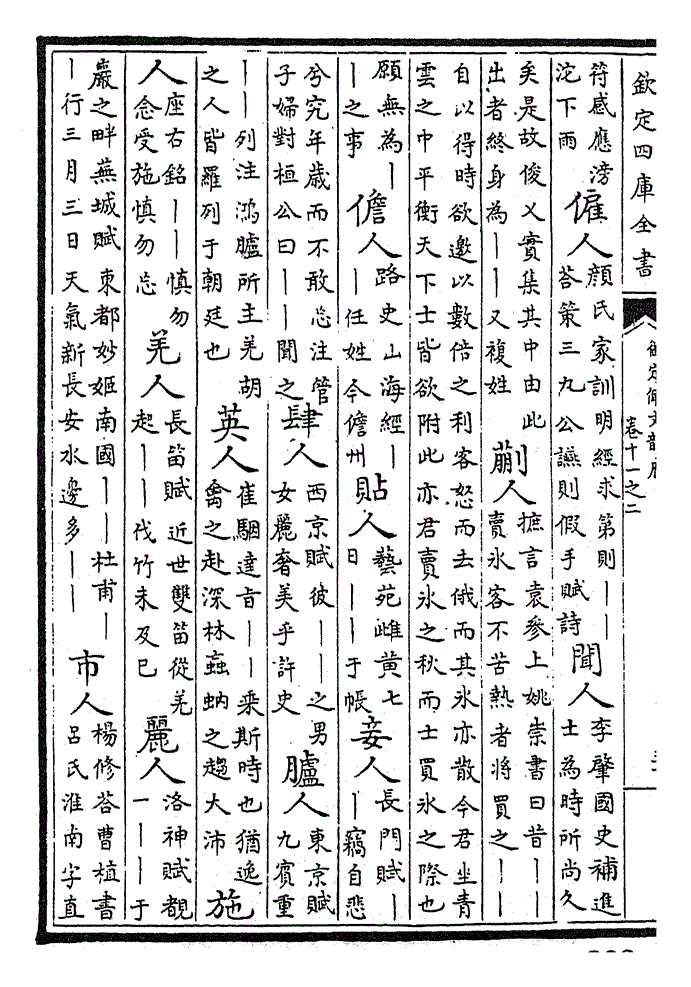 欽定四庫全書
御定佩文韻府
卷十一之二
符感應滂
沱下雨
僱人
顏氏家訓明經求第則｜｜
荅策三九公讌則假手賦詩
聞人
李肇國史補進
士為時所尚久
矣是故俊乂實集其中由此
出者終身為｜｜又複姓
蒯人
摭言袁參上姚崇書曰昔｜｜
賣氷客不苦熱者將買之｜｜
自以得時欲邀以數倍之利客怒而去俄而其氷亦散今君坐青
雲之中平衡天下士皆欲附此亦君賣氷之秋而士買氷之際也
願無為｜
｜之事
儋人
路史山海經｜
｜任姓今儋州
貼人
藝苑雌黄七
日｜｜于帳
妾人
長門賦｜
｜竊自悲
兮究年歲而不敢忘注管
子婦對桓公曰｜｜聞之
肆人
西京賦彼｜｜之男
女麗奢美乎許史
臚人
東京賦
九賓重
｜｜列注鴻臚所主羌胡
之人皆羅列于朝廷也
英人
崔駰達旨｜｜乘斯時也猶逸
禽之赴深林蝱蚋之趨大沛
施
人
座右銘｜｜慎勿
念受施慎勿忘
羌人
長笛賦近世雙笛從羌
起｜｜伐竹未及已
麗人
洛神賦覩
一｜｜于
巖之畔蕪城賦東都妙姬南國｜｜杜甫｜
｜行三月三日天氣新長安水邊多｜｜
市人
楊修荅曹植書
呂氏淮南字直